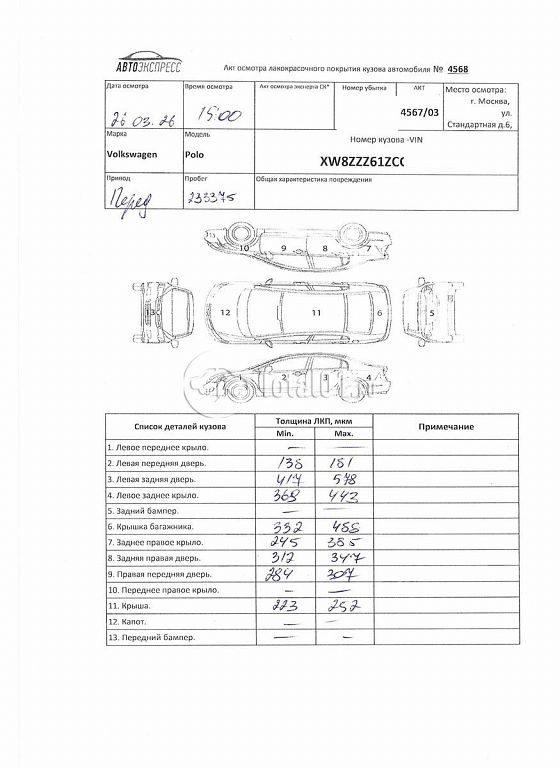 АВТОЭКСПРЕСС
Акт осмотра лакокрасочного покрытия кузова автомобиля № 4568
Дата осмотра Время осмотра Акт осмотра эксперта СК* Номер убытка АКТ Место осмотра:
26 03. 26 15:00 4567/03 г. Москва,
ул.
Стандартная д.6,
Марка Модель Номер кузова -VIN
Volkswagen Polo XW8ZZZ61ZC
Привод Пробег Общая характеристика повреждения
Перед 233375
10 9 8 7
13 12 11 6 5
1 2 3 4
Список деталей кузова Толщина ЛКП, мкм Примечание
Min. Max.
1. Левое переднее крыло. — —
2. Левая передняя дверь. 138 181
3. Левая задняя дверь. 417 578
4. Левое заднее крыло. 368 442
5. Задний бампер. — —
6. Крышка багажника. 332 488
7. Заднее правое крыло. 245 385
8. Задняя правая дверь. 312 347
9. Правая передняя дверь. 284 307
10. Переднее правое крыло. — —
11. Крыша. 223 252
12. Капот. — —
13. Передний бампер. — —